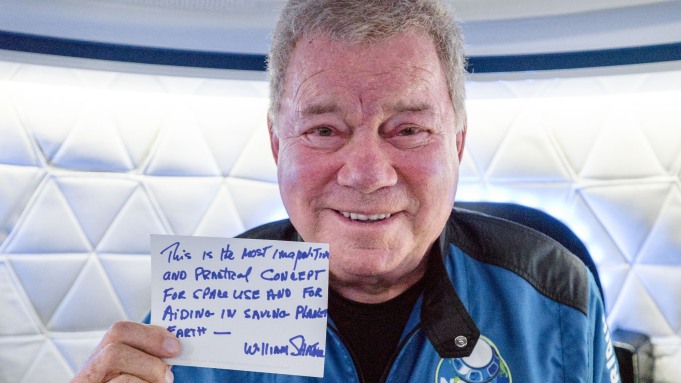 This is the MOST
AND PRACTICAL CONCEPT
FOR SPACE USE AND FOR
AIDING IN SAVING PLANET
EARTH —
WILLIAM SHATNER